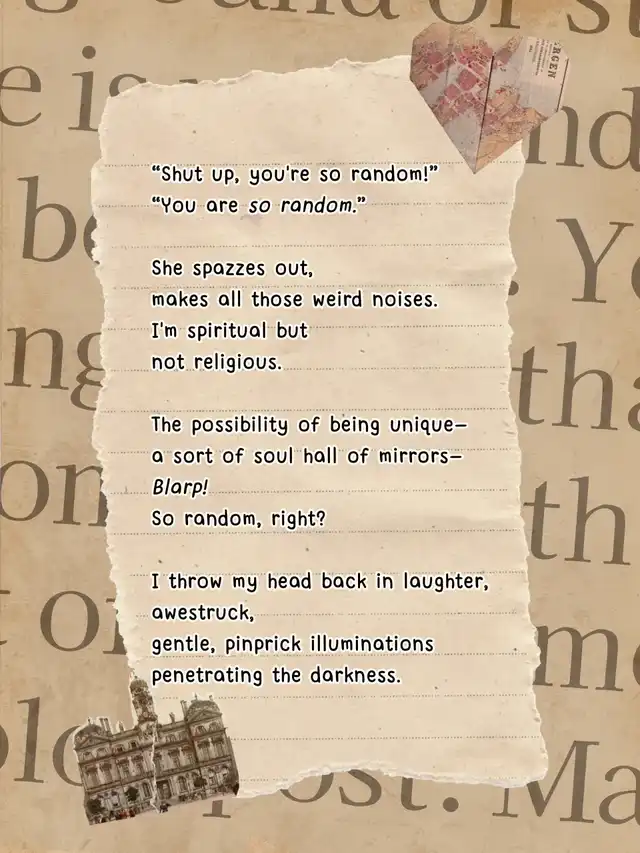 “Shut up, you're so random!”
“You are so random.”
She spazzes out,
makes all those weird noises.
I'm spiritual but
not religious.
The possibility of being unique—
a sort of soul hall of mirrors—
Blarp!
So random, right?
I throw my head back in laughter,
awestruck,
gentle, pinprick illuminations
penetrating the darkness.